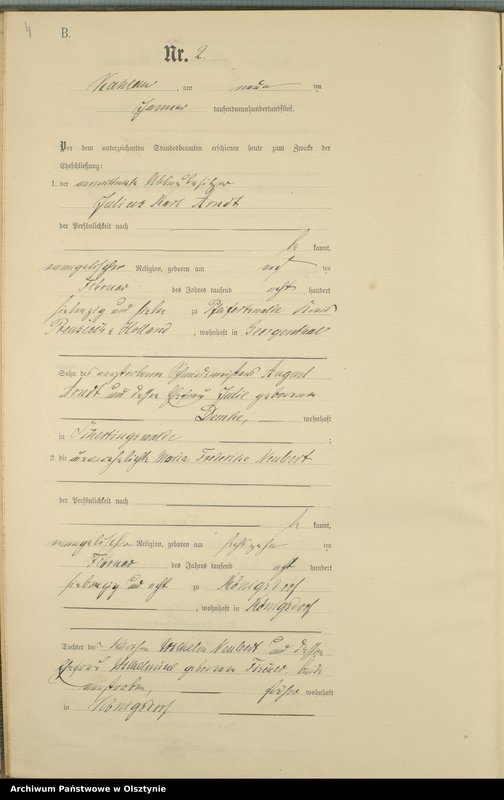 4 B.
Nr. 2.
am neun ten
Januar tausendneunhundertundfünf.
Vor dem unterzeichneten Standesbeamten erschienen heute zum Zwecke der
Eheschließung:
1. der
Julius Karl Arndt
der Persönlichkeit nach
be kannt,
evangelischer Religion, geboren am ten
Februar des Jahres tausend acht hundert
siebenzig und sieben zu
Preußisch Holland, wohnhaft in Georgenthal
Sohn des verstorbenen August
Arndt und dessen Ehefrau Julie geborenen
Demke, wohnhaft
in ;
2. die unverehelichte Maria Frederike Neubert
der Persönlichkeit nach
be kannt,
evangelischer Religion, geboren am sechszehn ten
Februar des Jahres tausend acht hundert
siebenzig und acht zu Königsdorf
, wohnhaft in Königsdorf
Tochter des Wilhelm Neubert und dessen
Ehefrau Wilhelmine geborenen beide
verstorben, früher wohnhaft
in Königsdorf
Archiwum Państwowe w Olsztynie